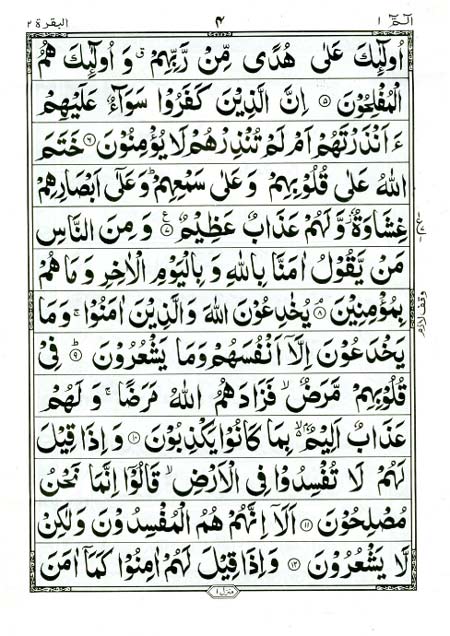 الٓمّٓ ١ ٤ البقرة ٢
اُولٰٓئِكَ عَلٰى هُدًى مِّنْ رَّبِّهِمْ ۗ وَ اُولٰٓئِكَ هُمُ
الْمُفْلِحُوْنَ ۝۵ اِنَّ الَّذِيْنَ كَفَرُوْا سَوَآءٌ عَلَيْهِمْ
ءَاَنْذَرْتَهُمْ اَمْ لَمْ تُنْذِرْهُمْ لَا يُؤْمِنُوْنَ ۝۶ خَتَمَ
اللّٰهُ عَلٰى قُلُوْبِهِمْ وَ عَلٰى سَمْعِهِمْ ؕ وَ عَلٰٓى اَبْصَارِهِمْ
غِشَاوَةٌ ؗ وَّ لَهُمْ عَذَابٌ عَظِيْمٌ ۝۷ وَ مِنَ النَّاسِ
مَنْ يَّقُوْلُ اٰمَنَّا بِاللّٰهِ وَ بِالْيَوْمِ الْاٰخِرِ وَ مَا هُمْ
بِمُؤْمِنِيْنَ ۝۸ يُخٰدِعُوْنَ اللّٰهَ وَ الَّذِيْنَ اٰمَنُوْا ۚ وَ مَا
يَخْدَعُوْنَ اِلَّاۤ اَنْفُسَهُمْ وَ مَا يَشْعُرُوْنَ ۝۹ فِيْ
قُلُوْبِهِمْ مَّرَضٌ ۙ فَزَادَهُمُ اللّٰهُ مَرَضًا ۚ وَ لَهُمْ
عَذَابٌ اَلِيْمٌ ۢ ۙ بِمَا كَانُوْا يَكْذِبُوْنَ ۝۱۰ وَ اِذَا قِيْلَ
لَهُمْ لَا تُفْسِدُوْا فِى الْاَرْضِ ۙ قَالُوْۤا اِنَّمَا نَحْنُ
مُصْلِحُوْنَ ۝۱۱ اَلَاۤ اِنَّهُمْ هُمُ الْمُفْسِدُوْنَ وَ لٰكِنْ
لَّا يَشْعُرُوْنَ ۝۱۲ وَ اِذَا قِيْلَ لَهُمْ اٰمِنُوْا كَمَاۤ اٰمَنَ
وقف لازم
منزل ١